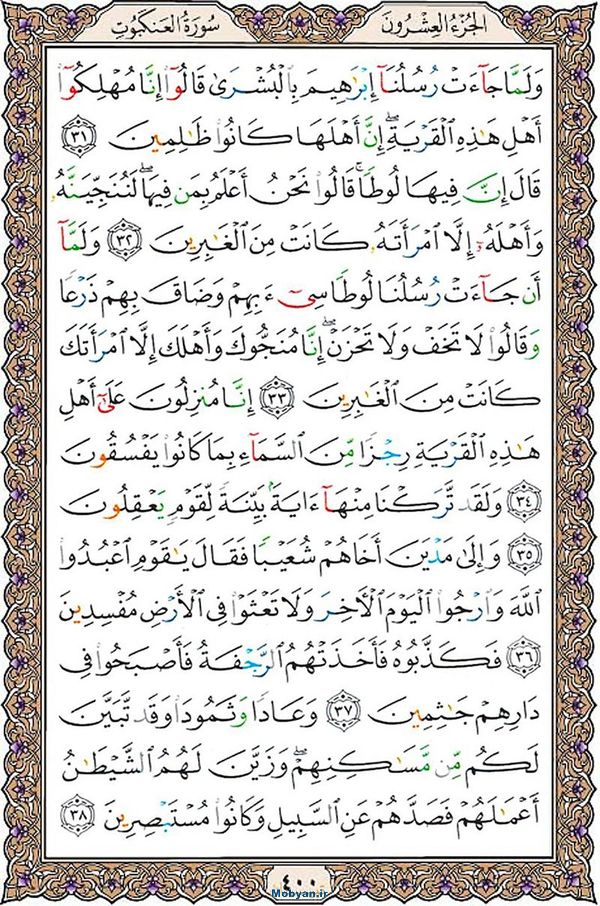 الجزء العشرون
سورة العنكبوت
وَلَمَّا جَآءَتْ رُسُلُنَآ إِبْرَٰهِيمَ بِٱلْبُشْرَىٰ قَالُوٓا۟ إِنَّا مُهْلِكُوٓا۟
أَهْلِ هَٰذِهِ ٱلْقَرْيَةِ ۖ إِنَّ أَهْلَهَا كَانُوا۟ ظَٰلِمِينَ ٣١
قَالَ إِنَّ فِيهَا لُوطًا ۚ قَالُوا۟ نَحْنُ أَعْلَمُ بِمَن فِيهَا ۖ لَنُنَجِّيَنَّهُۥ
وَأَهْلَهُۥٓ إِلَّا ٱمْرَأَتَهُۥ كَانَتْ مِنَ ٱلْغَٰبِرِينَ ٣٢ وَلَمَّآ
أَن جَآءَتْ رُسُلُنَا لُوطًا سِىٓءَ بِهِمْ وَضَاقَ بِهِمْ ذَرْعًا
وَقَالُوا۟ لَا تَخَفْ وَلَا تَحْزَنْ ۖ إِنَّا مُنَجُّوكَ وَأَهْلَكَ إِلَّا ٱمْرَأَتَكَ
كَانَتْ مِنَ ٱلْغَٰبِرِينَ ٣٣ إِنَّا مُنزِلُونَ عَلَىٰٓ أَهْلِ
هَٰذِهِ ٱلْقَرْيَةِ رِجْزًا مِّنَ ٱلسَّمَآءِ بِمَا كَانُوا۟ يَفْسُقُونَ
٣٤ وَلَقَد تَّرَكْنَا مِنْهَآ ءَايَةًۢ بَيِّنَةً لِّقَوْمٍ يَعْقِلُونَ
٣٥ وَإِلَىٰ مَدْيَنَ أَخَاهُمْ شُعَيْبًا فَقَالَ يَٰقَوْمِ ٱعْبُدُوا۟
ٱللَّهَ وَٱرْجُوا۟ ٱلْيَوْمَ ٱلْأَخِرَ وَلَا تَعْثَوْا۟ فِى ٱلْأَرْضِ مُفْسِدِينَ
٣٦ فَكَذَّبُوهُ فَأَخَذَتْهُمُ ٱلرَّجْفَةُ فَأَصْبَحُوا۟ فِى
دَارِهِمْ جَٰثِمِينَ ٣٧ وَعَادًا وَثَمُودَا۟ وَقَد تَّبَيَّنَ
لَكُم مِّن مَّسَٰكِنِهِمْ ۖ وَزَيَّنَ لَهُمُ ٱلشَّيْطَٰنُ
أَعْمَٰلَهُمْ فَصَدَّهُمْ عَنِ ٱلسَّبِيلِ وَكَانُوا۟ مُسْتَبْصِرِينَ ٣٨
٤٠٠
Mobyan.ir